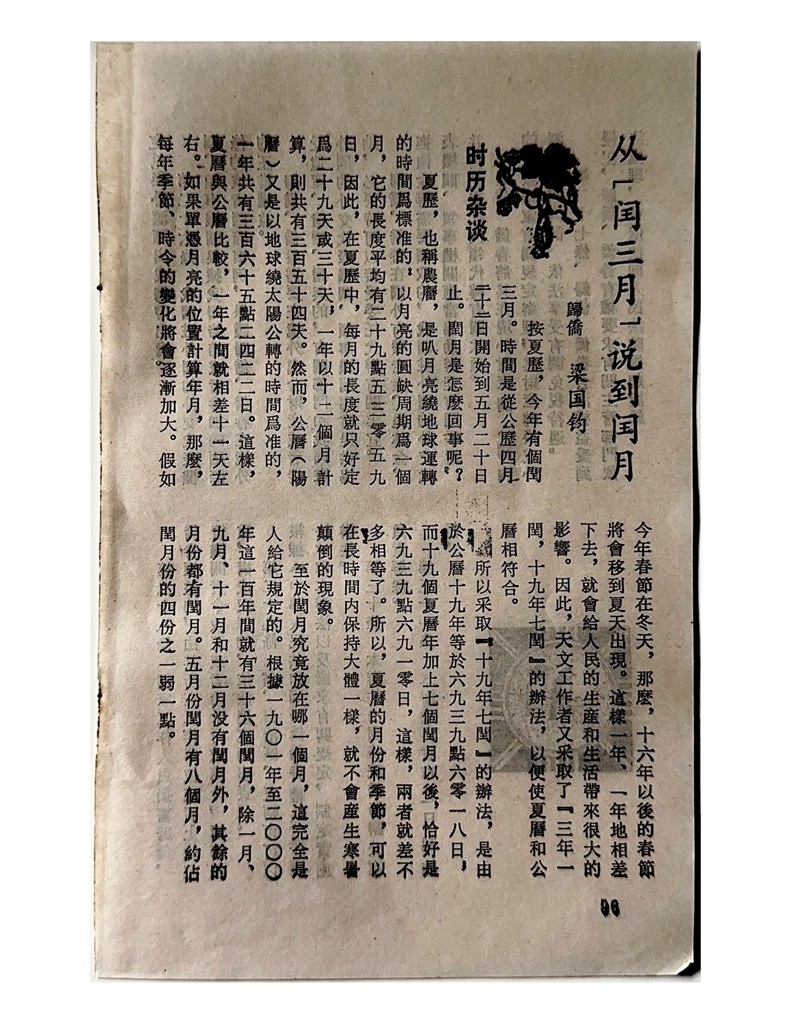 从「闰三月」说到闰月
歸僑 梁国钧
时历杂谈
按夏歷，今年有個閏
三月。時間是從公歷四月
二十二日開始到五月二十日
止。閏月是怎麽回事呢？
夏歷，也稱農曆，是叭月亮繞地球運轉
的時間爲標准的。以月亮的圓缺周期爲一個
月，它的長度平均有二十九點五三零五九
日，因此，在夏歷中，每月的長度就只好定
爲二十九天或三十天，一年以十二個月計
算，則共有三百五十四天。然而，公曆（陽
曆）又是以地球繞太陽公轉的時間爲准的，
一年共有三百六十五點二四二二日。這樣，
夏曆與公曆比較，一年之間就相差十一天左
右。如果單憑月亮的位置計算年月，那麽，
每年季節、時令的變化將會逐漸加大。假如
今年春節在冬天，那麽，十六年以後的春節
將會移到夏天出現。這樣一年、一年地相差
下去，就會給人民的生産和生活帶來很大的
影響。因此，天文工作者又采取了『三年一
閏，十九年七閏』的辦法，以便使夏曆和公
曆相符合。
所以采取『十九年七閏』的辦法，是由
於公曆十九年等於六九三九點六零一八日，
而十九個夏曆年加上七個閏月以後，恰好是
六九三九點六九一零日，這樣，兩者就差不
多相等了。所以，夏曆的月份和季節，可以
在長時間内保持大體一樣，就不會産生寒暑
顛倒的現象。
至於閏月究竟放在哪一個月，這完全是
人給它規定的。根據一九〇一年至二〇〇〇
年這一百年間就有三十六個閏月，除一月、
九月、十一月和十二月没有閏月外，其餘的
月份都有閏月。五月份閏月有八個月，約佔
閏月份的四份之一弱一點。
96